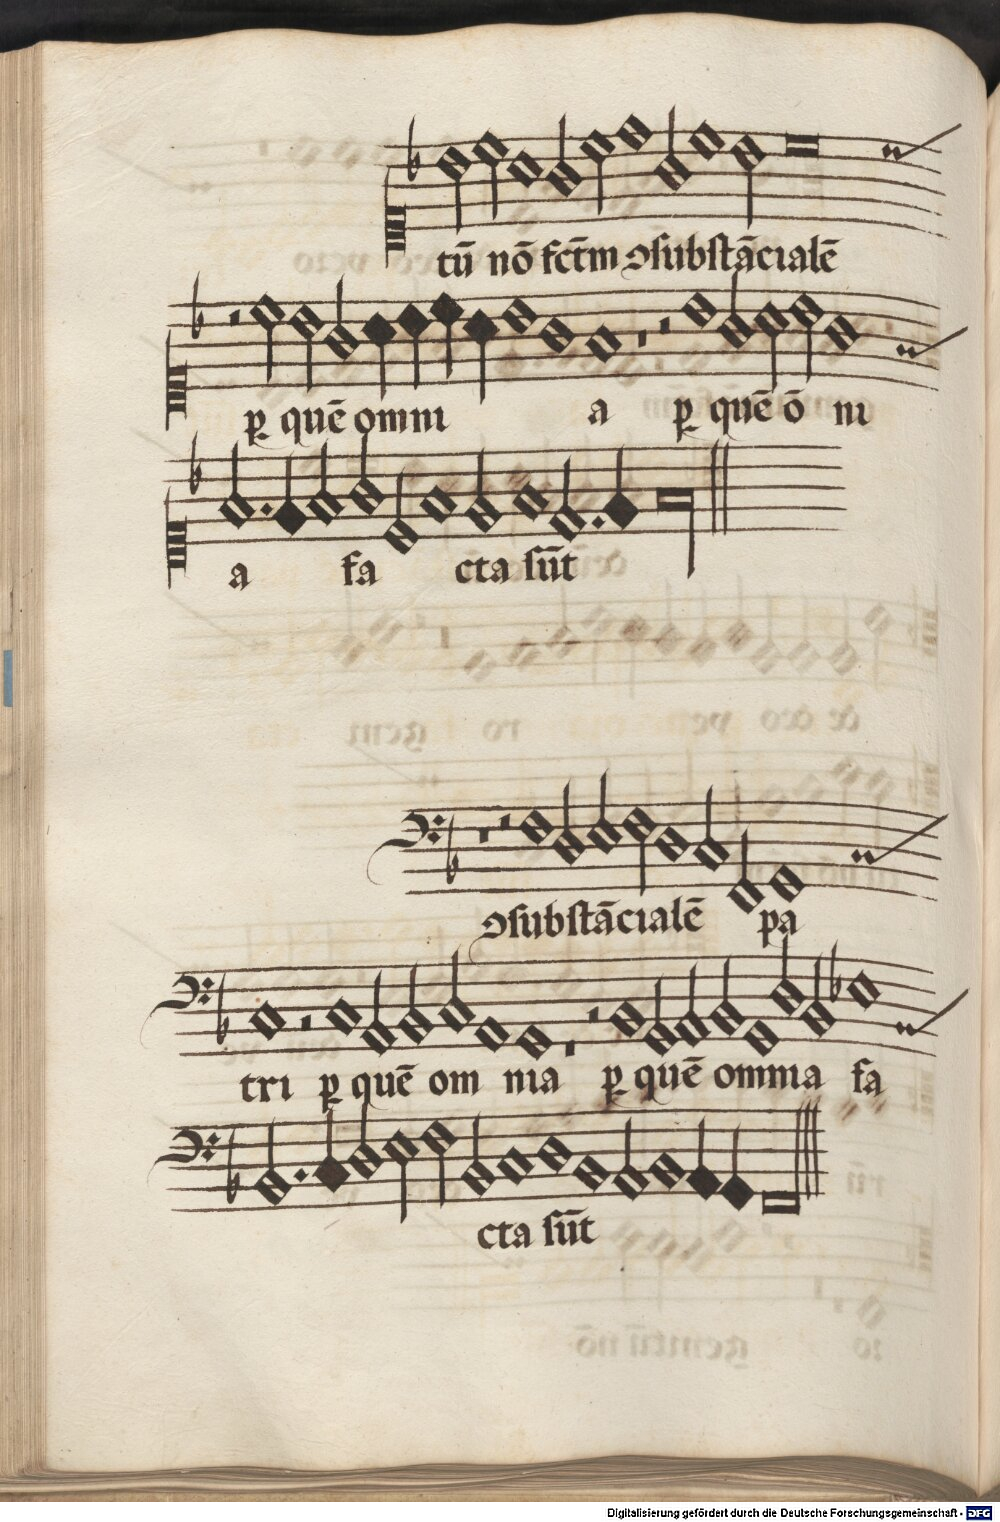 tū nō fct̄m ꝯſubſtācialē
ꝑ quē omni a ꝑ quē ō ni
a fa cta ſūt
ꝯſubſtācialē pa
tri ꝑ quē om nia ꝑ quē omnia fa
cta ſūt
Digitalisierung gefördert durch die Deutsche Forschungsgemeinschaft - DFG